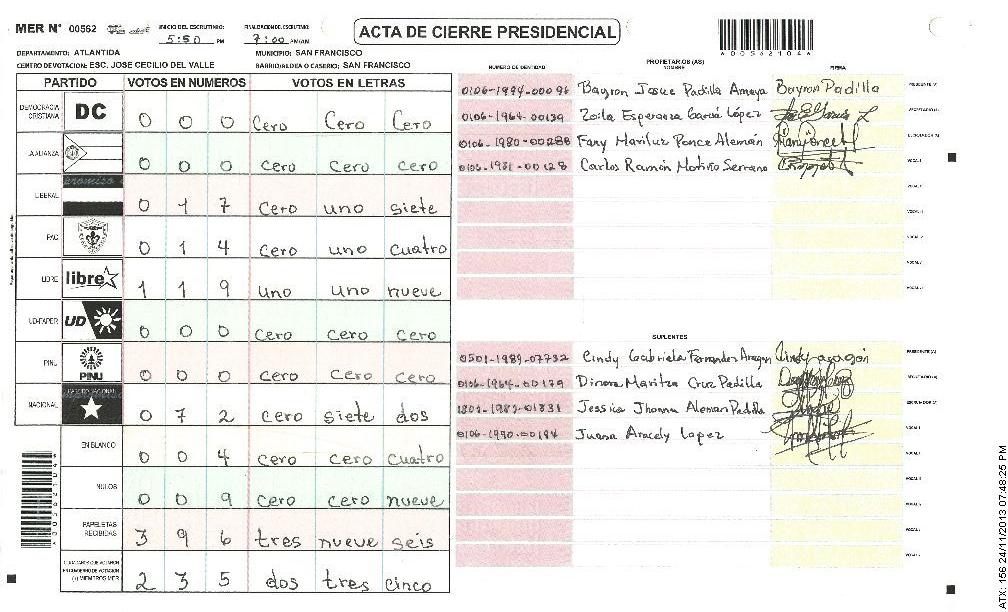 MER N° 00562
INICIO DEL ESCRUTINIO:
5:50 PM
FINALIZACION DEL ESCRUTINIO:
7:00 PM/AM
ACTA DE CIERRE PRESIDENCIAL
DEPARTAMENTO: ATLANTIDA
MUNICIPIO: SAN FRANCISCO
CENTRO DE VOTACION: ESC. JOSE CECILIO DEL VALLE
BARRIO/ALDEA O CASERIO: SAN FRANCISCO
PARTIDO VOTOS EN NUMEROS VOTOS EN LETRAS
DEMOCRACIA CRISTIANA DC 0 0 0 Cero Cero Cero
LA ALIANZA 0 0 0 Cero Cero Cero
LIBERAL 0 1 7 Cero uno siete
PAC 0 1 4 Cero uno cuatro
LIBRE libre 1 1 9 uno uno nueve
UD-FAPER UD 0 0 0 Cero Cero Cero
PINU PINU 0 0 0 Cero Cero Cero
NACIONAL 0 7 2 Cero siete dos
EN BLANCO 0 0 4 Cero Cero Cuatro
NULOS 0 0 9 Cero Cero nueve
PAPELETAS RECIBIDAS 3 9 6 tres nueve seis
2 3 5 dos tres cinco
NUMERO DE IDENTIDAD PROPIETARIOS (AS) NOMBRE FIRMA
0106-1994-00096 Bayron Josue Padilla Amaya Bayron Padilla
0106-1964-00139 Zoila Esperanza García López
0106-1980-00288 Fany Mariluz Ponce Alemán
0106-1981-00128 Carlos Ramón Motiño Serrano
SUPLENTES
0501-1989-07732 Cindy Gabriela Fernandez Aragon
0106-1964-00179 Dinora Maritza Cruz Padilla
1804-1989-01831 Jessica Jhonna Aleman Padilla
0106-1990-00194 Juana Aracely Lopez
ATX: 156 24/11/2013 07:48:25 PM